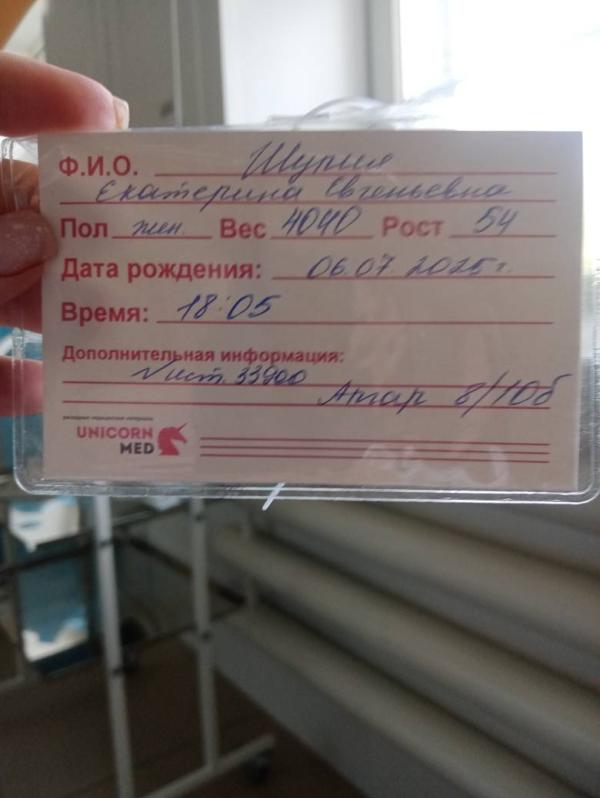 Ф.И.О. Шупия
Екатерина Евгеньевна
Пол жен. Вес 4040 Рост 54
Дата рождения: 06.07.2025г.
Время: 18:05
Дополнительная информация:
N ист. 33900
Апгар 8/10б
расходные медицинские материалы
UNICORN
MED